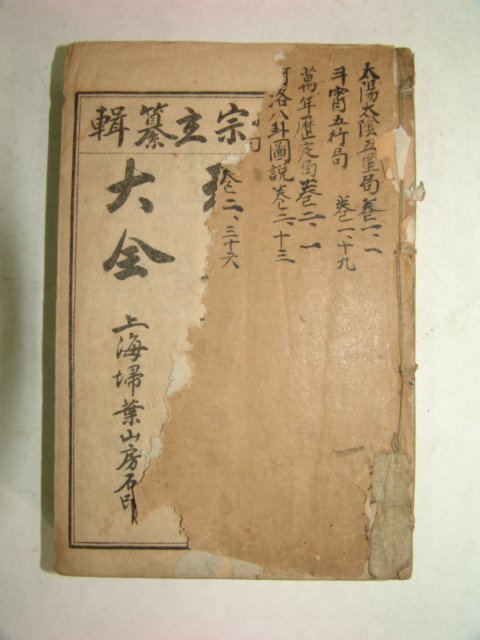 太陽太陰五星局 卷一、一
斗宵五行局 卷一、十九
萬年曆定局 卷二、一
河洛八卦圖說 卷二、十三
卷二、三十六
宗主纂輯
大全
上海埽葉山房石印